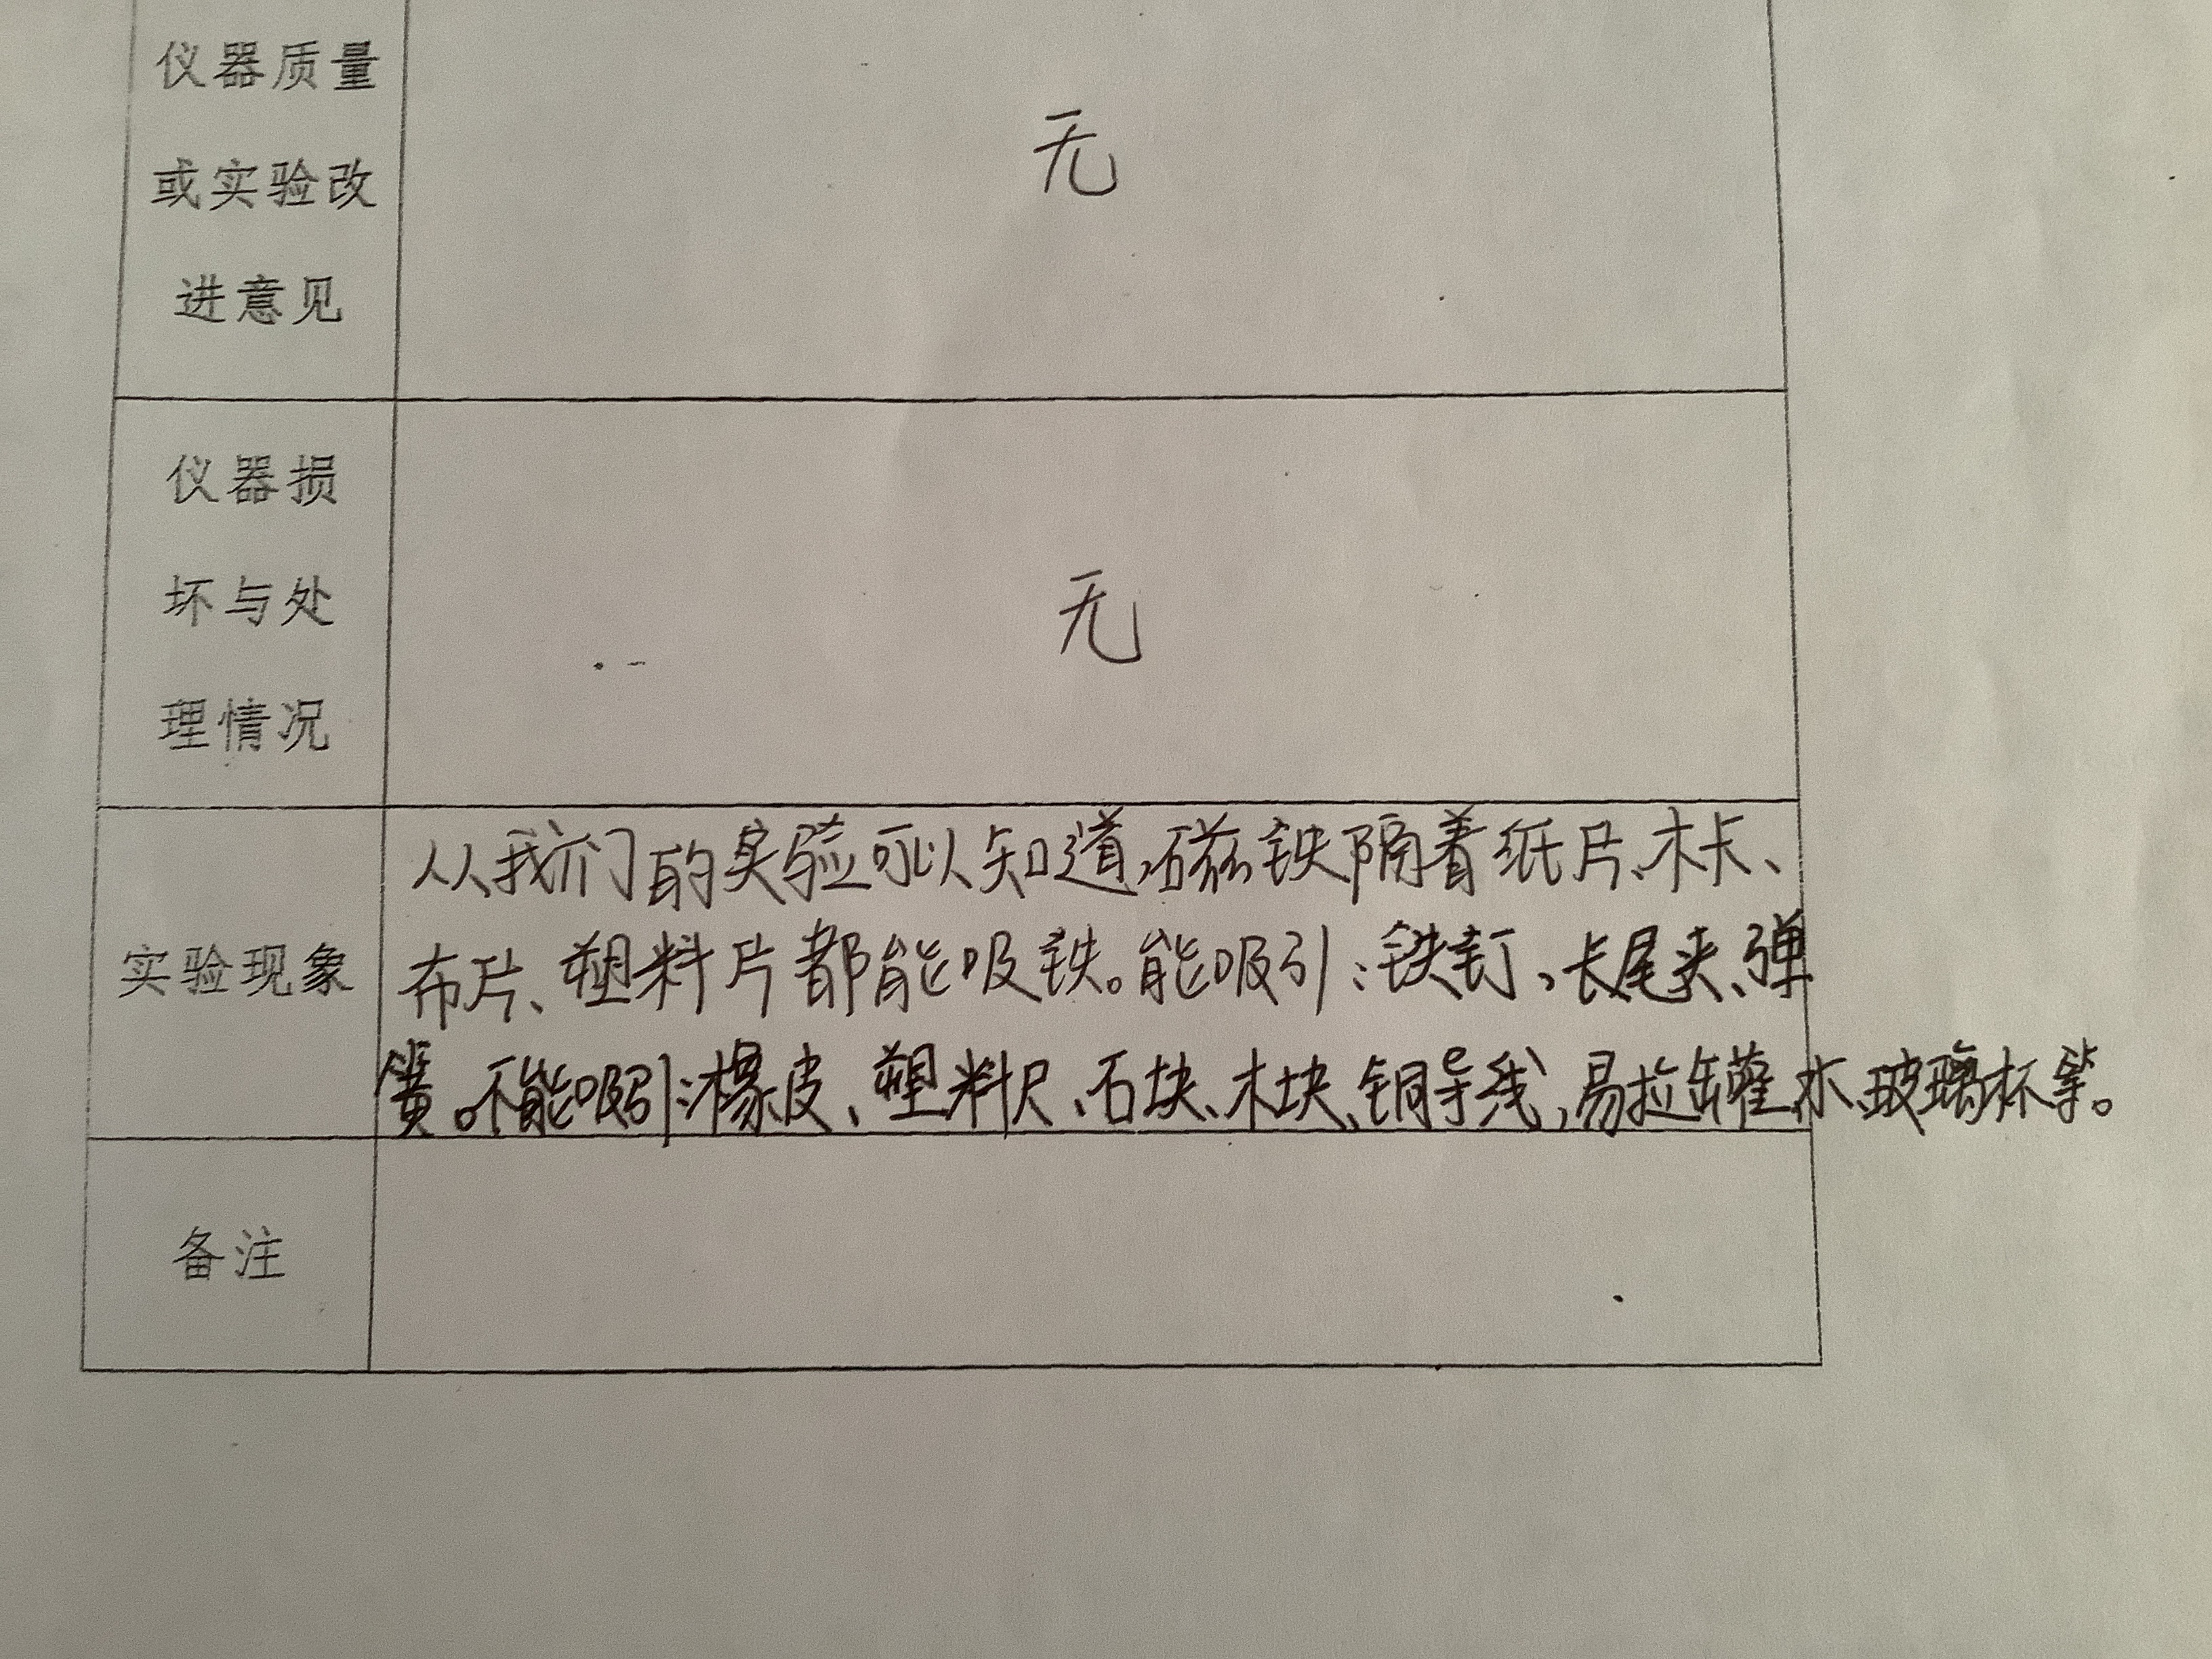 仪器质量
或实验改
进意见
无
仪器损
坏与处
理情况
无
实验现象
从我们的实验可以知道,磁铁隔着纸片、木卡、
布片、塑料片都能吸铁。能吸引:铁钉、长尾夹、弹
簧。不能吸引:橡皮、塑料尺、石块、木块、铜导线,易拉罐、水、玻璃杯等。
备注